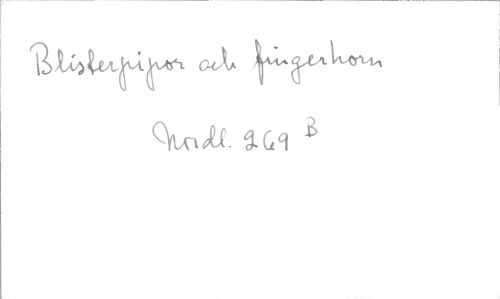 Blisterpipor och fingerhorn
Nordl. 269 B